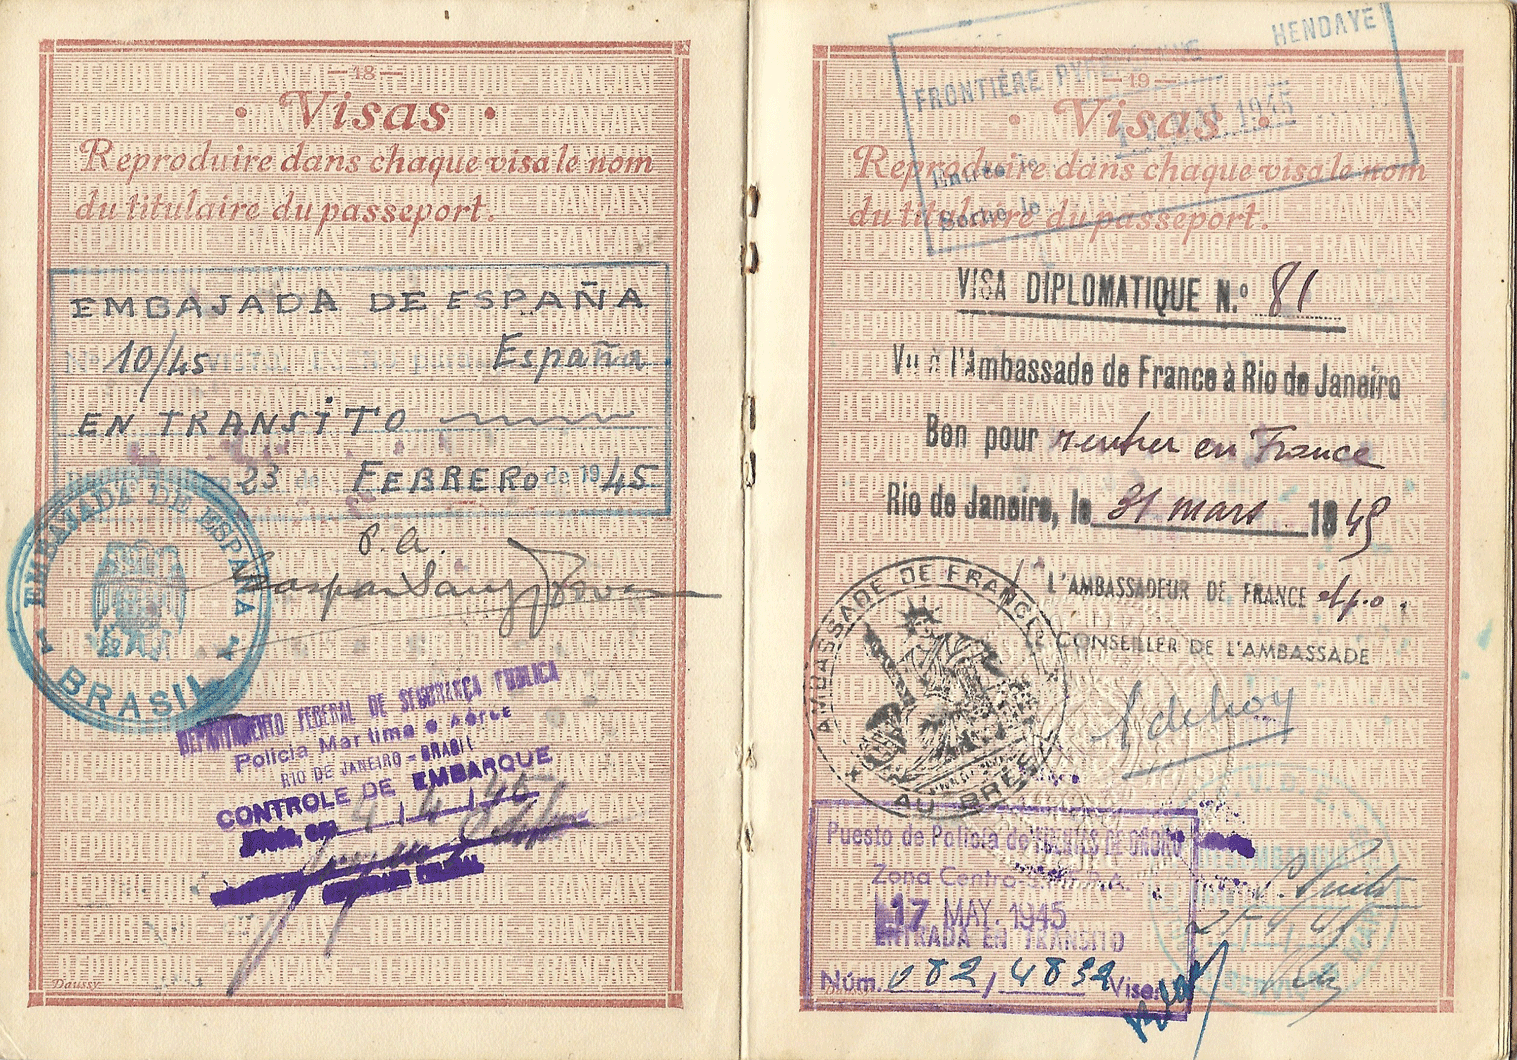 —18—
• Visas •
Reproduire dans chaque visa le nom
du titulaire du passeport.
EMBAJADA DE ESPAÑA
10/45 España
EN TRANSITO
23 de FEBRERO de 1945
EMBAJADA DE ESPAÑA
BRASIL
P.A.
DEPARTAMENTO FEDERAL DE SEGURANÇA PUBLICA
Policia Maritima e Aérea
RIO DE JANEIRO - BRASIL
CONTROLE DE EMBARQUE
4 / 45
Daussy.
HENDAYE
FRONTIÈRE PYRÉNÉENNE
1945
Entré le
Sortie le
—19—
• Visas •
Reproduire dans chaque visa le nom
du titulaire du passeport.
VISA DIPLOMATIQUE N.º 81
Vu à l'Ambassade de France à Rio de Janeiro
Bon pour rentrer en France
Rio de Janeiro, le 31 mars 1945
L'AMBASSADEUR DE FRANCE
LE CONSEILLER DE L'AMBASSADE
AMBASSADE DE FRANCE
AU BRÉSIL
Puesto de Policía de FUENTES DE OÑORO
Zona Centro
17 MAY. 1945
ENTRADA EN TRANSITO
Núm. 082/4832 Visa: